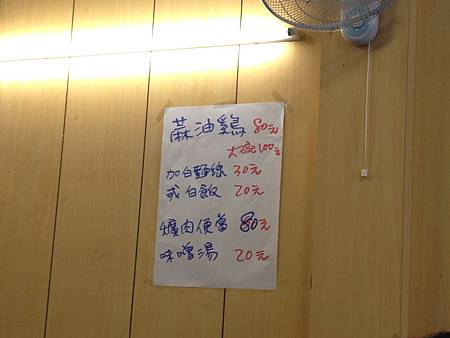 蔴油鷄 80元
大碗100元
加白麵線 30元
或白飯 20元
爌肉便當 80元
味噌湯 20元